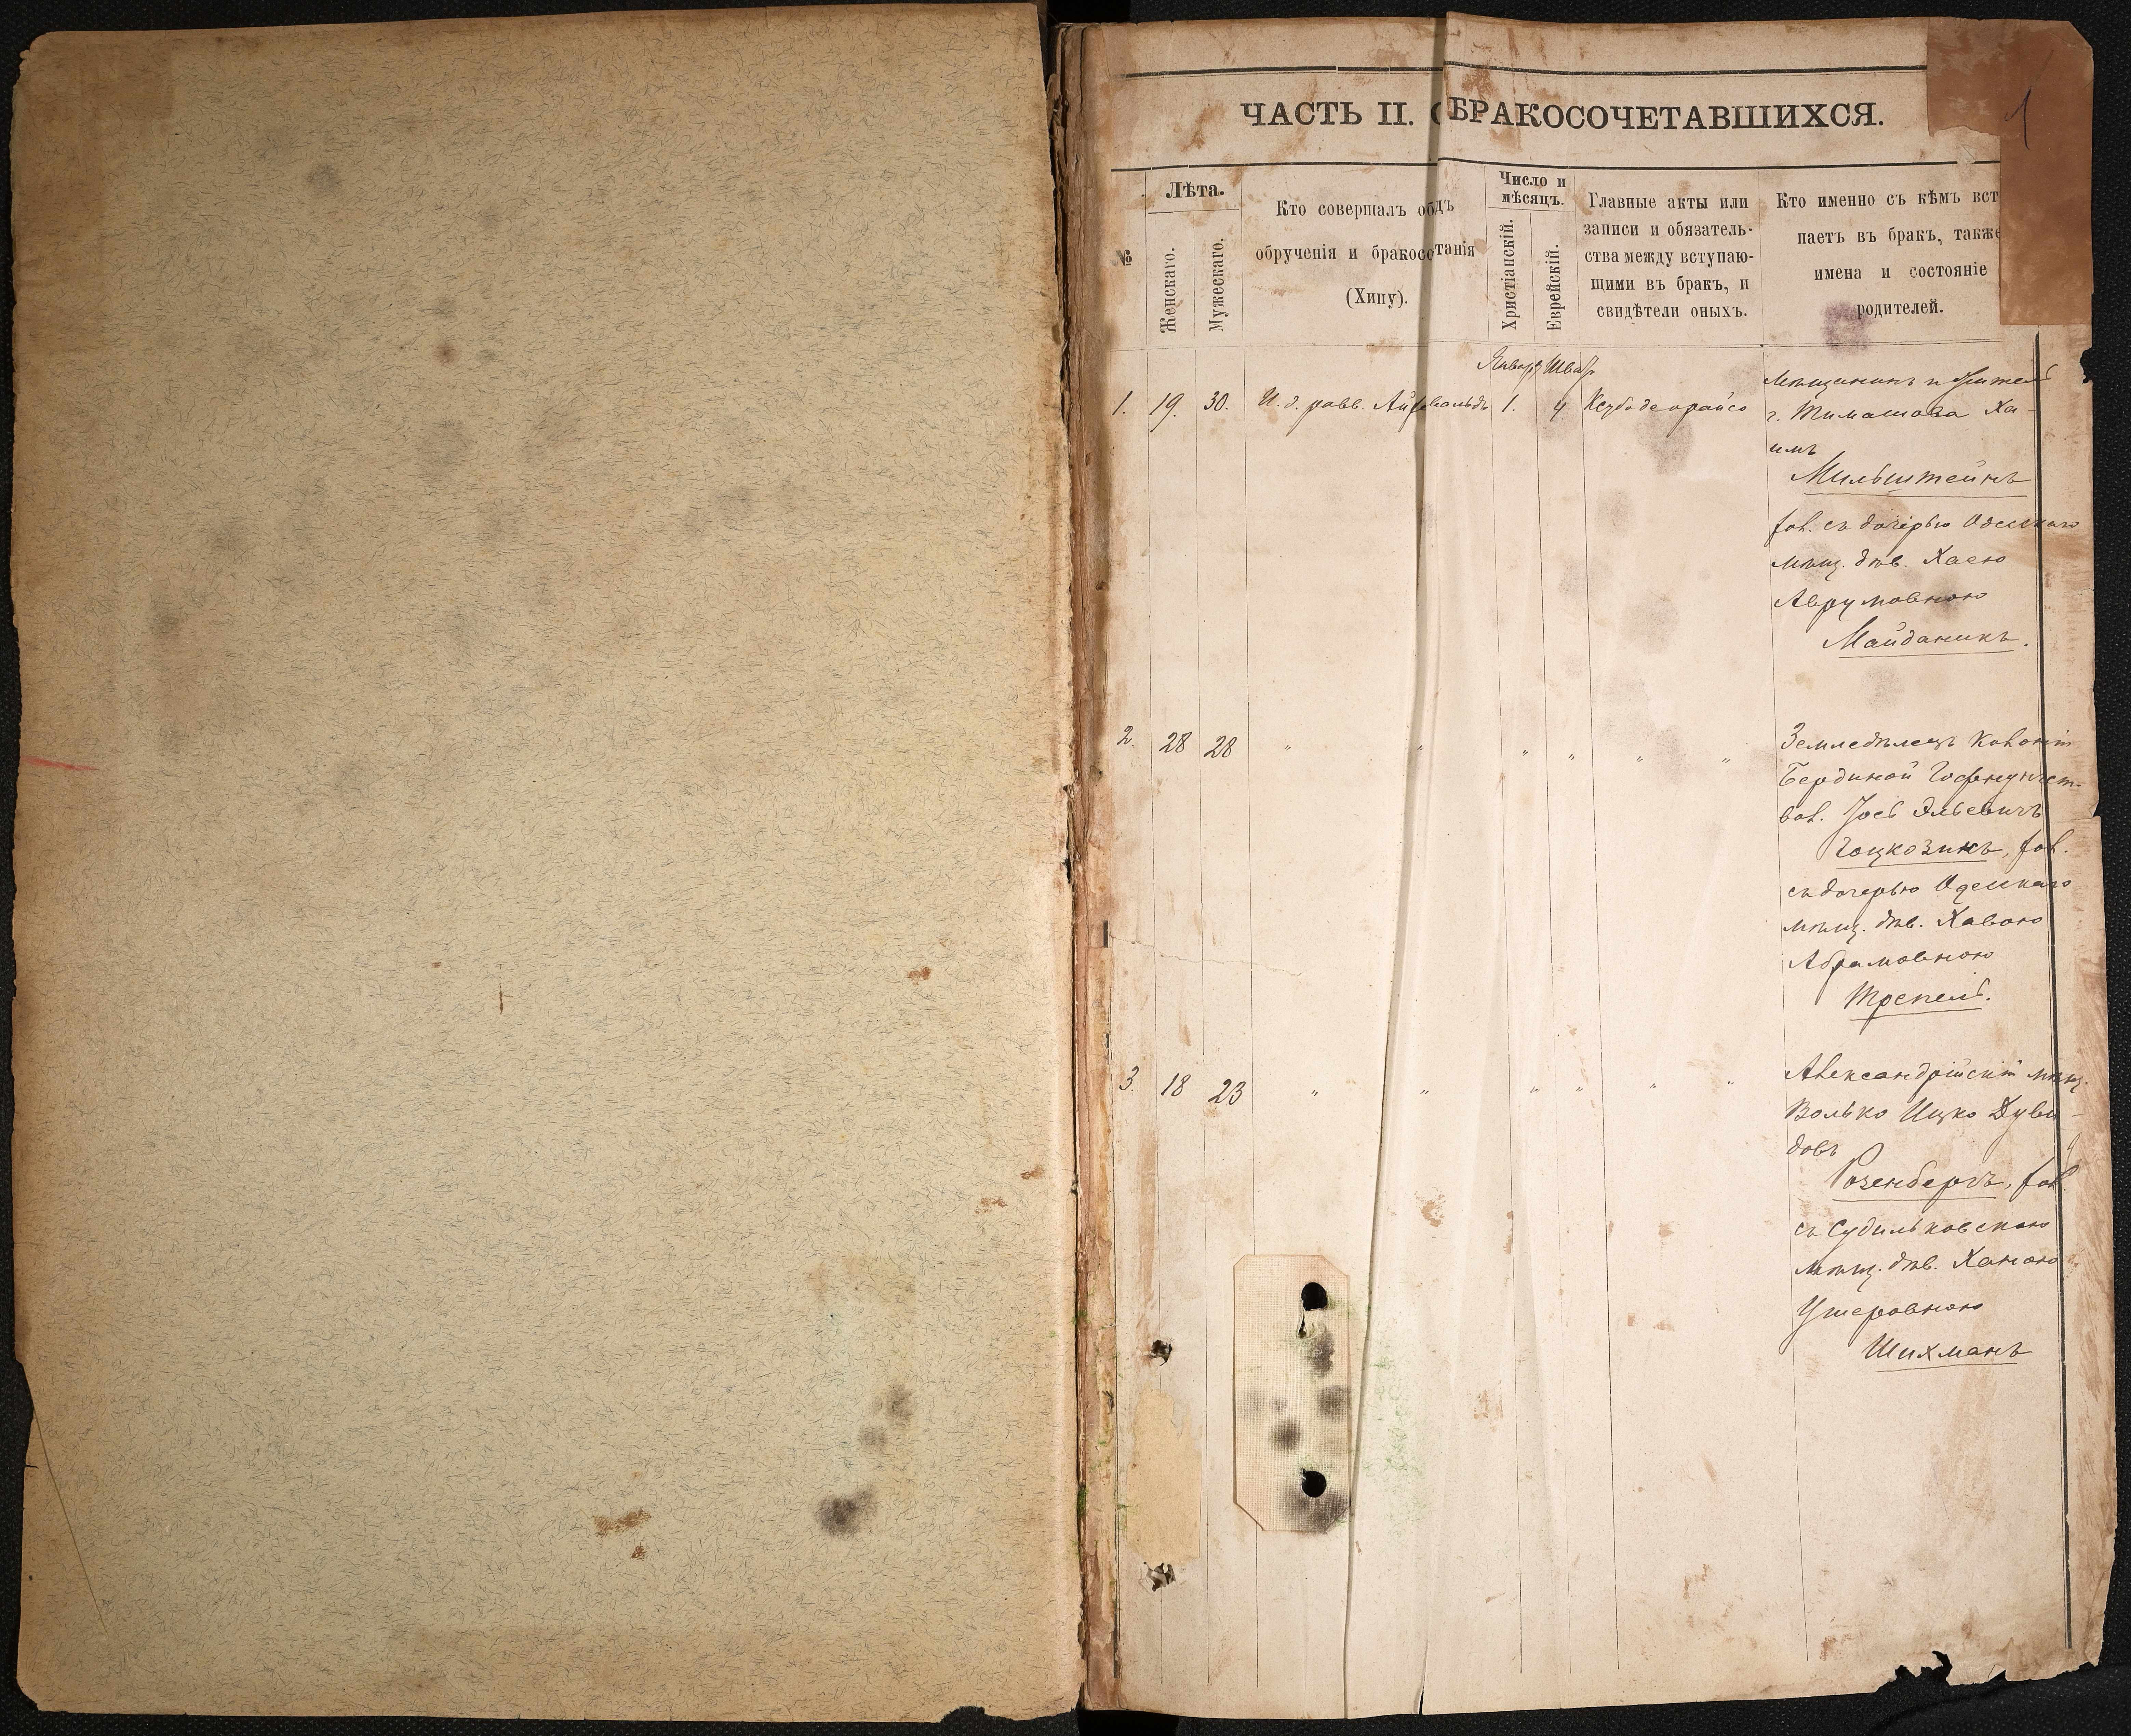 1
ЧАСТЬ II. О БРАКОСОЧЕТАВШИХСЯ.
№
Лѣта.
Женскаго.
Мужескаго.
Кто совершалъ об дъ
обрученія и бракосо танія
(Хипу).
Число и
мѣсяцъ.
Христіанскій.
Еврейскій.
Главные акты или
записи и обязатель-
ства между вступаю-
щими въ бракъ, и
свидѣтели оныхъ.
Кто именно съ кѣмъ вст
паетъ въ бракъ, также
имена и состояніе
родителей.
1. 19. 30. И. д. равв. 1. 4
мѣщанинъ и
г. Ха-
имъ
Мильштейнъ
хол. съ дочерью Одесскаго
мѣщ. дѣв. Хаею
Аврумовною
Майданикъ.
2. 28 28 " " " " " "
Земледѣлецъ колоніи
Іось Эльевичъ
Гоцкозикъ, хол.
съ дочерью Одесскаго
мѣщ. дѣв. Хавою
Абрамовною
Трепель.
3. 18 23 " " " " " "
Александрійскій мѣщ.
Волько Ицко Дуви-
довъ
Розенбергъ, хол.
съ Судилковскою
мѣщ. дѣв. Ханою
Ушеровною
Шихманъ